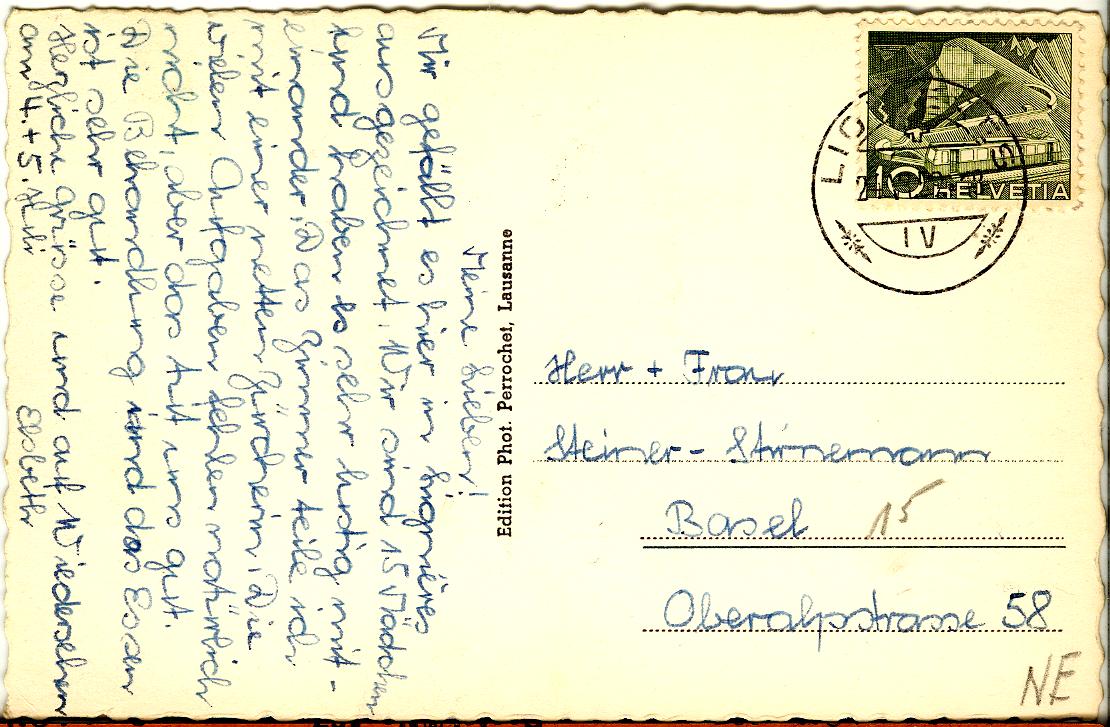 Meine Lieben!
Mir gefällt es hier in Lignières
ausgezeichnet. Wir sind 15 Mädchen
und haben es sehr lustig mit-
einander. Das Zimmer teile ich
mit einer netten Zürcherin. Die
vielen Aufgaben fehlen natürlich
nicht, aber das tut uns gut.
Die Behandlung und das Essen
ist sehr gut.
Herzliche Grüsse und auf Wiedersehen
am 4. + 5. Juli
Elsbeth
Edition Phot. Perrochet, Lausanne
10 HELVETIA
IV
Herr + Frau
Steiner - Stünemann
Basel 15
Oberalpstrasse 58
NE